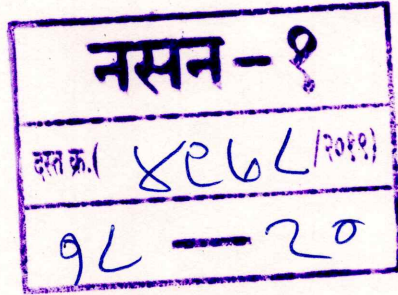 नसन-१
दस्त क्र.( ४९७८/२०१९)
१८ — २०